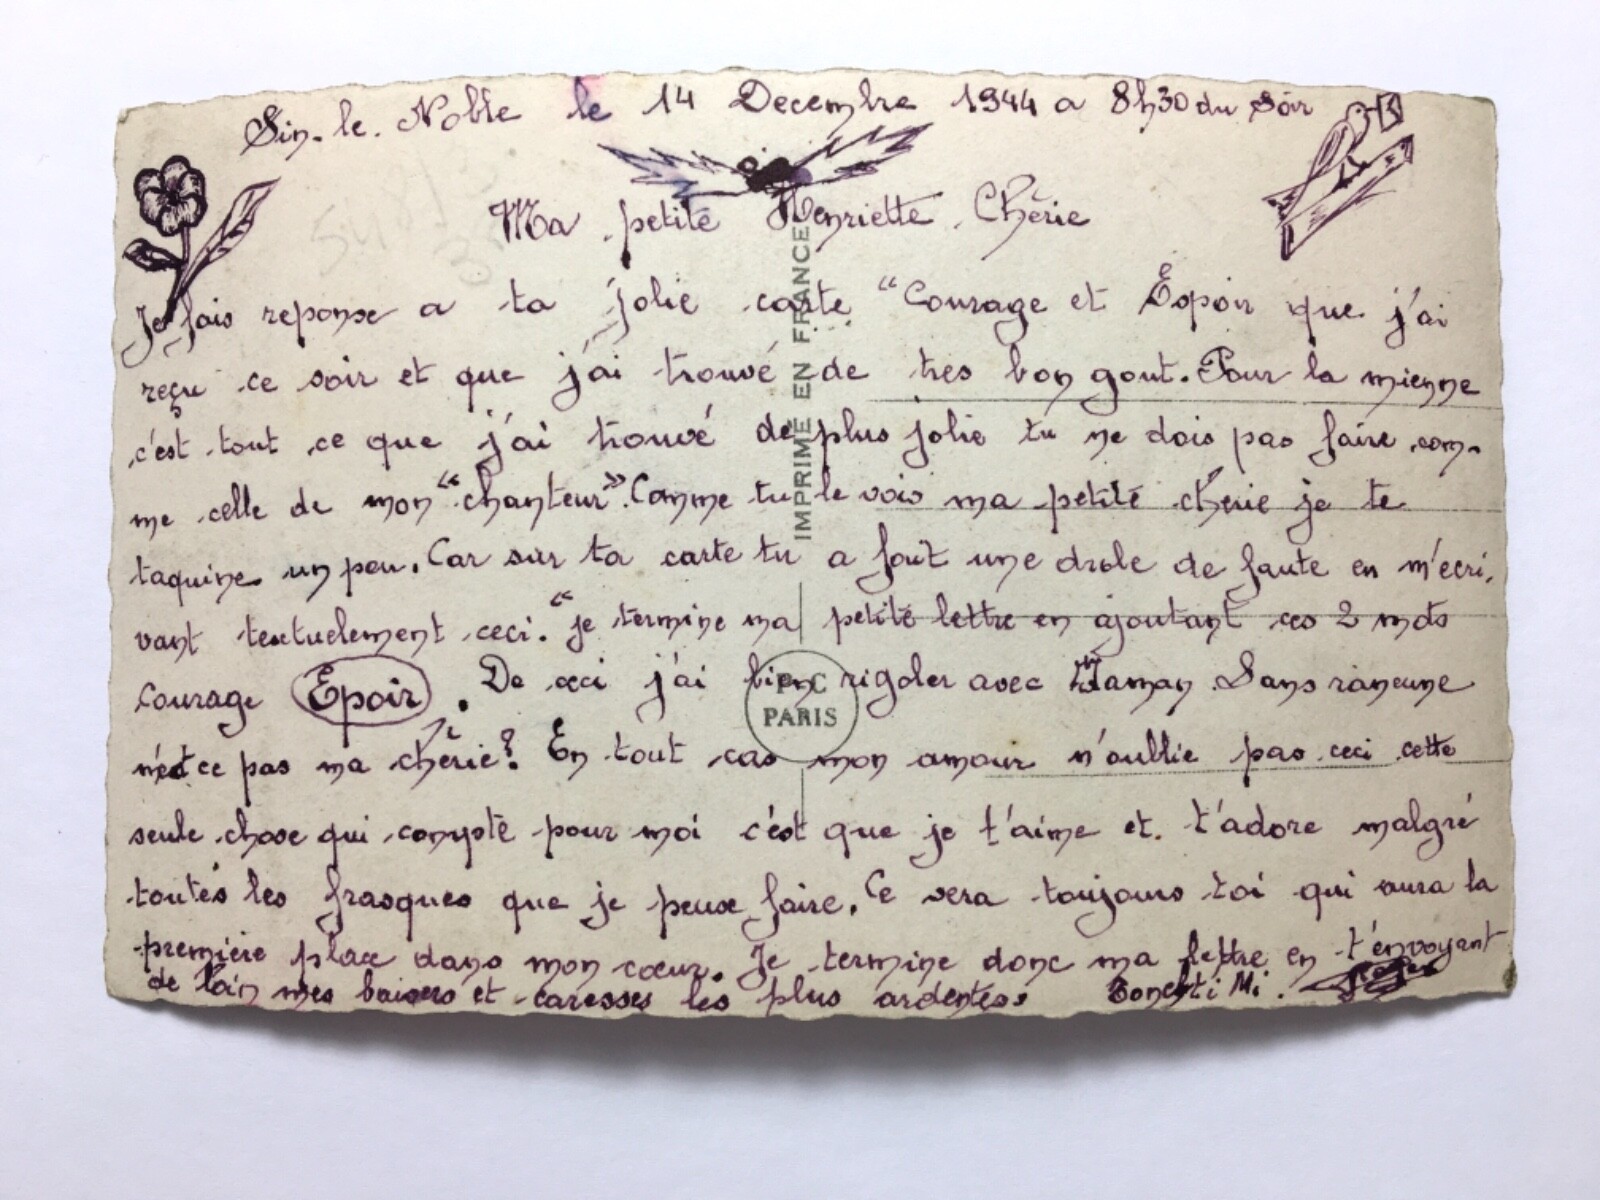 Sin-le-Noble le 14 Decembre 1944 a 8h30 du Soir
Ma petite Henriette Chérie
Je fais reponse a ta jolie carte "Courage et Espoir que j'ai
reçu ce soir et que j'ai trouvé de tres bon gout. Pour la mienne
c'est tout ce que j'ai trouvé de plus jolie tu ne dois pas faire com-
me celle de mon "chanteur". Comme tu le vois ma petite chérie je te
taquine un peu. Car sur ta carte tu a fait une drole de faute en m'ecri-
vant textuelement ceci. "je termine ma petite lettre en ajoutant ces 2 mots
Courage Epoir. De ceci j'ai bien rigoler avec Maman Sans rancune
n'est ce pas ma chérie? En tout cas mon amour n'oublie pas ceci cette
seule chose qui compte pour moi c'est que je t'aime et t'adore malgré
toutes les frasques que je peux faire. Ce sera toujours toi qui aura la
première place dans mon cœur. Je termine donc ma lettre en t'envoyant
de loin mes baisers et caresses les plus ardentes. Mi.
IMPRIME EN FRANCE
P.C
PARIS